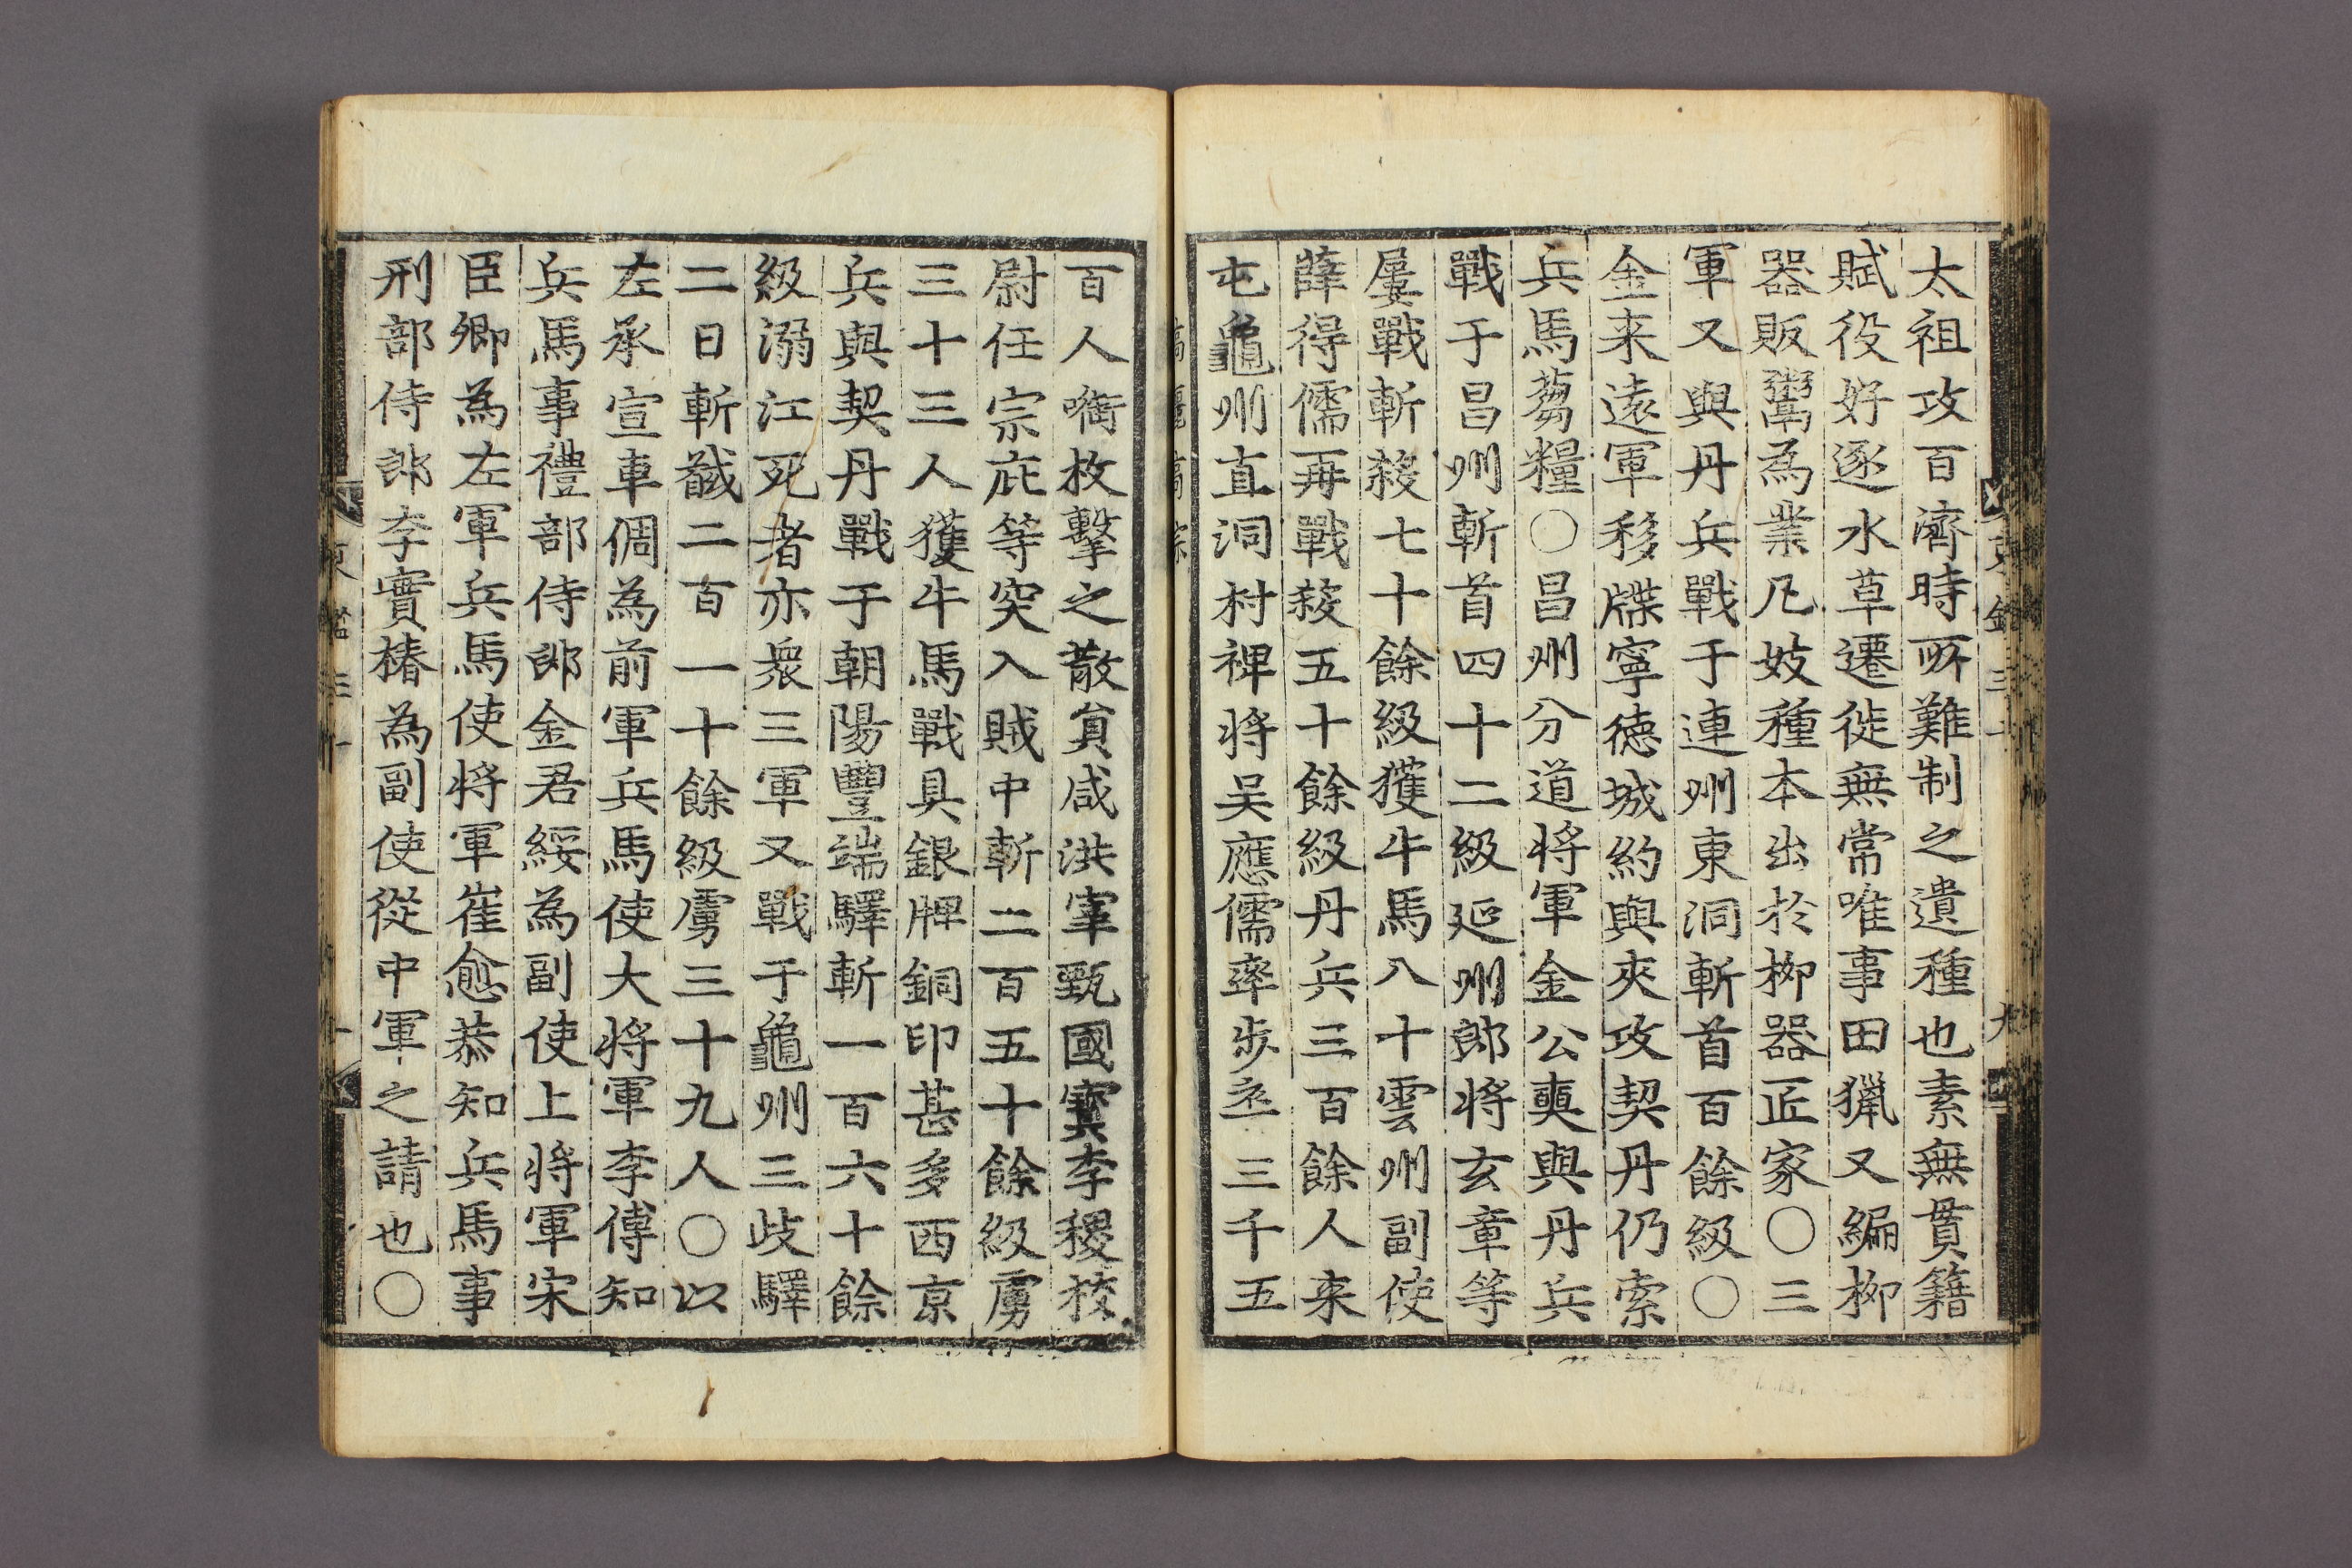 太祖攻百濟時所難制之遺種也素無貫籍
賦役好逐水草遷徙無常唯事田獵又編柳
器販鬻爲業凡妓種本出於柳器匠家○三
軍又與丹兵戰于連州東洞斬首百餘級○
金来遠軍移牒寧德城約與夾攻契丹仍索
兵馬蒭糧○昌州分道将軍金公奭與丹兵
戰于昌州斬首四十二級延州郎将玄章等
屢戰斬殺七十餘級獲牛馬八十雲州副使
薛得儒再戰殺五十餘級丹兵三百餘人来
屯龜州直洞村裨将吴應儒率步卒三千五
百人嘀枚擊之散貟咸洪宰甄國寶李稷校
尉任宗庇等突入賊中斬二百五十餘級虜
三十三人獲牛馬戰具銀牌銅印甚多西京
兵與契丹戰于朝陽豐端驛斬一百六十餘
級溺江死者亦衆三軍又戰于龜州三歧驛
二日斬馘二百一十餘級虜三十九人○以
左承宣車倜為前軍兵馬使大将軍李傅知
兵馬事禮部侍郎金君綏為副使上将軍宋
臣卿為左軍兵馬使将軍崔愈恭知兵馬事
刑部侍郎李實椿為副使從中軍之請也○